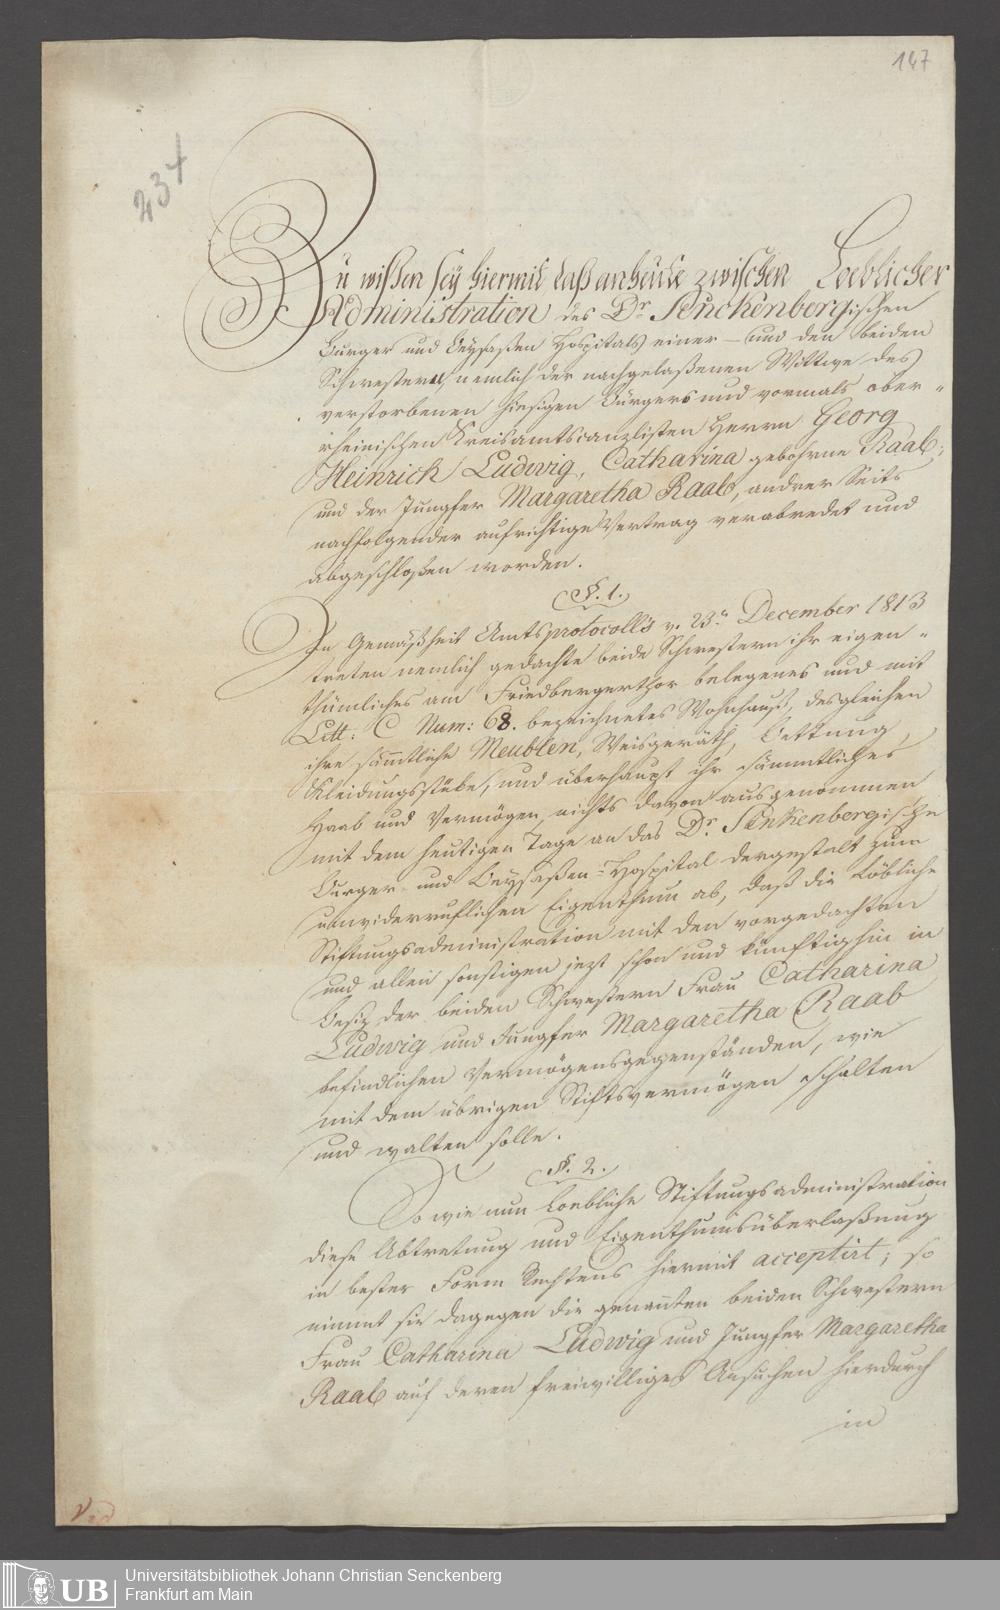 147
234
Zu wißen sey hiermit daß anheute zwischen Loeblicher
Administration des Dr. Senckenbergischen
Burger und Beysaßen Hospitals einer- und den beiden
Schwestern, nemlich der nachgelaßenen Wittwe des
verstorbenen hiesigen Bürgers und vormals ober-
rheinischen Kreisamtscanzlisten Herrn Georg
Heinrich Ludwig, Catharina gebohrne Raab,
und der Jungfer Margaretha Raab, andrer Seits
nachfolgender aufrichtige Vertrag verabredet und
abgeschloßen worden.
§. 1.
In Gemäßheit Amtsprotocolls v. 23n December 1813
treten nemlich gedachte beide Schwestern ihr eigen-
thümliches am Friedbergerthor belegenes und mit
Litt: C Num: 68. bezeichnetes Wohnhauß, desgleichen
ihre sämtliche Meublen, Weisgeräth, Bettung,
Kleidungsstüke, und überhaupt ihr sämmtliches
Haab und Vermögen, nichts davon ausgenommen
mit dem heutigen Tage an das Dr. Senkenbergische
Burger- und Beysaßen-Hospital dergestalt zum
unwiderruflichen Eigenthum ab, daß die Löbliche
Stiftungsadministration mit den vorgedachten
und allen sonstigen jezt schon und künftighin in
Besiz der beiden Schwestern Frau Catharina
Ludwig und Jungfer Margaretha Raab
befindlichen Vermögensgegenständen, wie
mit dem übrigen Stiftsvermögen schalten
und walten solle.
§. 2.
So wie nun Loebliche Stiftungsadministration
diese Abtretung und Eigenthumsüberlaßung
in bester Form Rechtens hiermit acceptirt; so
nimmt sie dagegen die genanten beiden Schwestern
Frau Catharina Ludwig und Jungfer Margaretha
Raab auf deren freiwilliges Ansuchen hierdurch
in
UB
Universitätsbibliothek Johann Christian Senckenberg
Frankfurt am Main